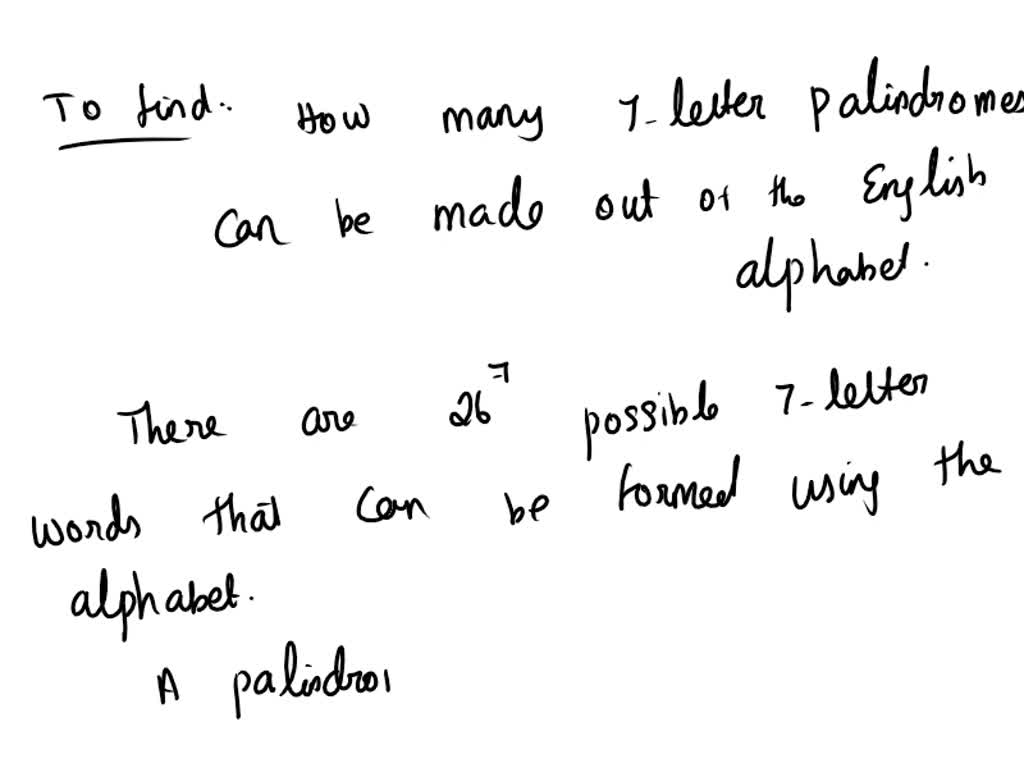 To find:. How many 7-letter palindromes
can be made out of the English
alphabet.
There are 26⁷ possible 7-letter
words that can be formed using the
alphabet.
A palindro